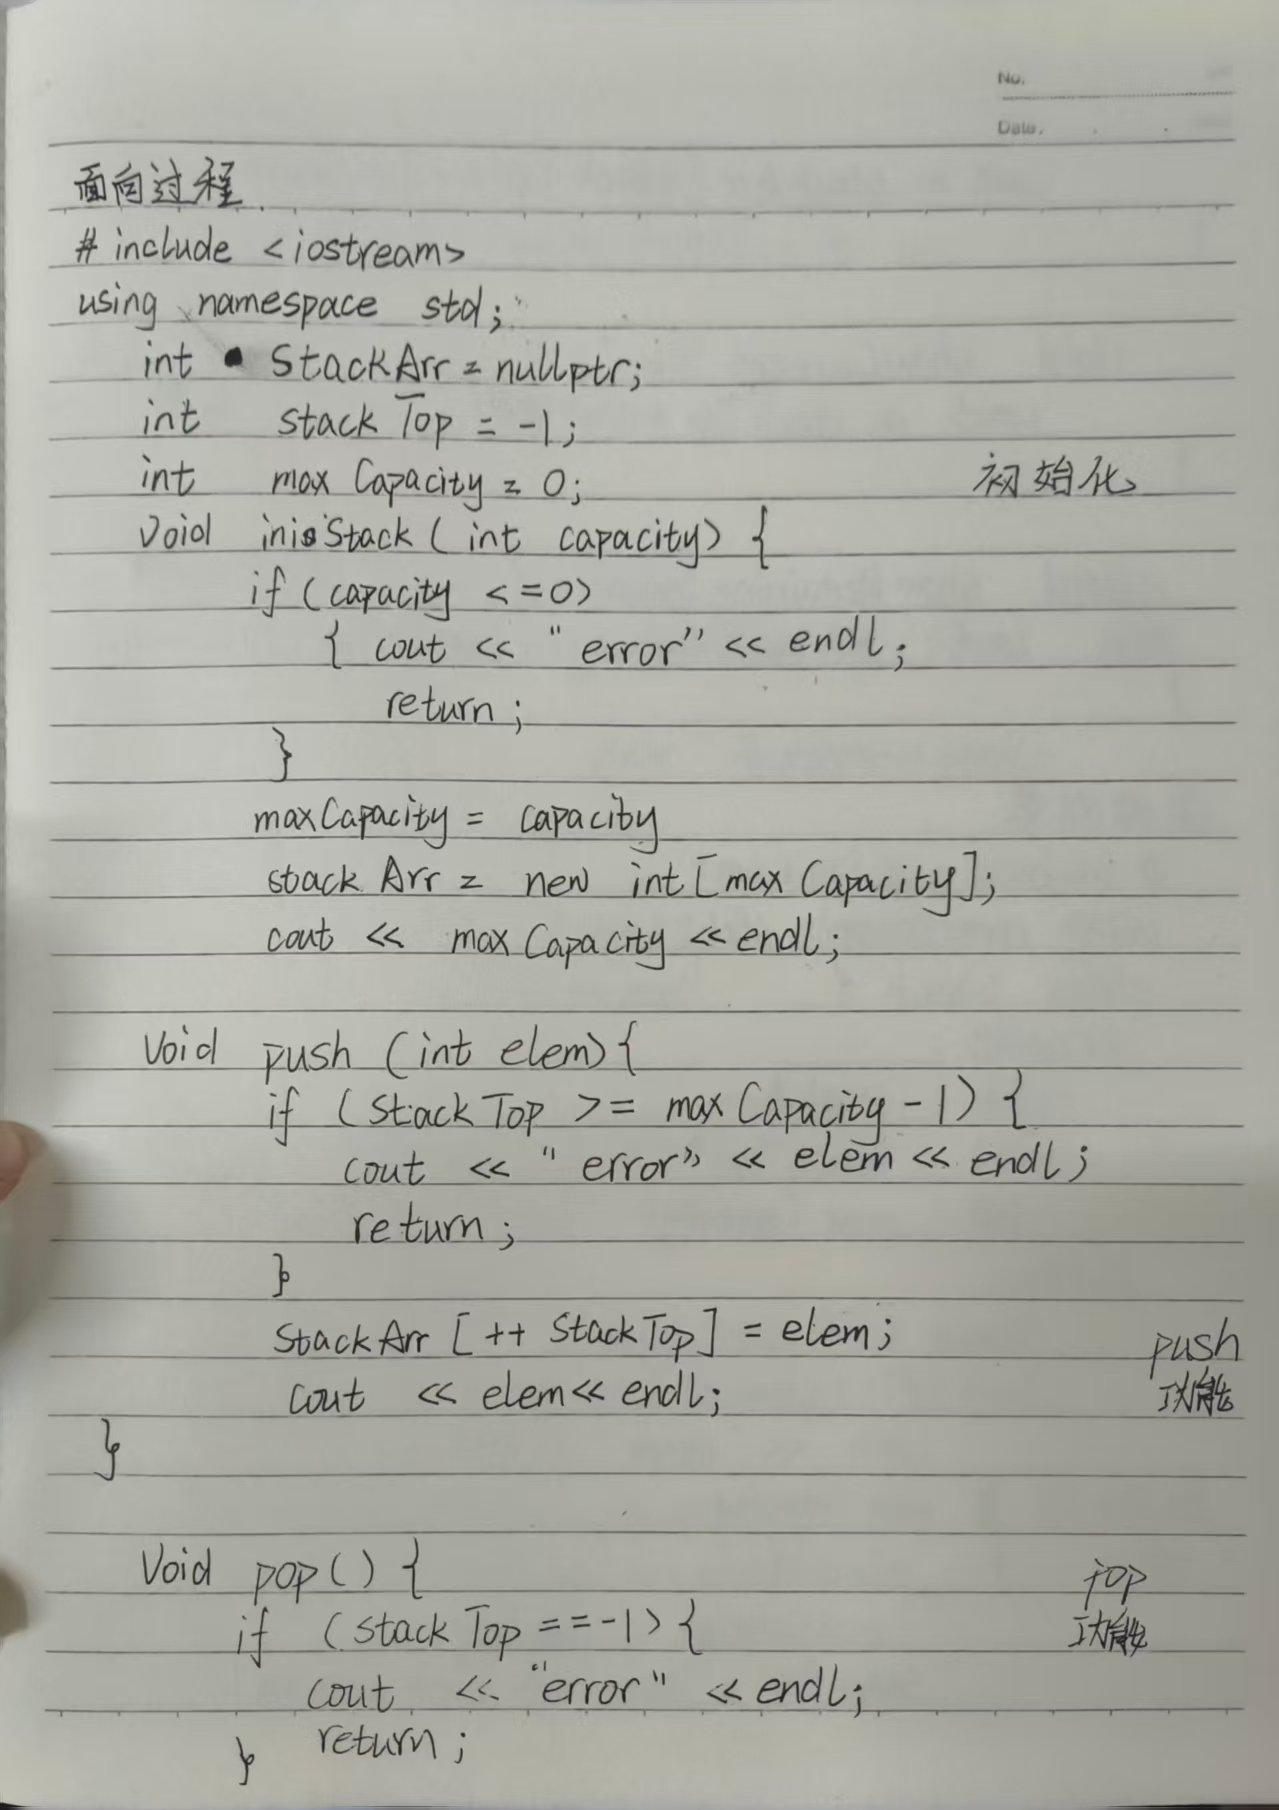 No.
Date.
面向过程
# include <iostream>
using namespace std;
int • StackArr = nullptr;
int stackTop = -1;
int maxCapacity = 0; 初始化
Void inisStack (int capacity) {
if (capacity <=0)
{ cout << "error" << endl;
return;
}
maxCapacity = capacity
stackArr = new int[maxCapacity];
cout << maxCapacity << endl;
Void push (int elem){
if (stackTop >= maxCapacity -1) {
cout << "error" << elem << endl;
return;
}
StackArr [++ StackTop] = elem; push
cout << elem << endl; 功能
}
Void pop() { pop
if (stackTop ==-1) { 功能
cout << "error" << endl;
return;
}